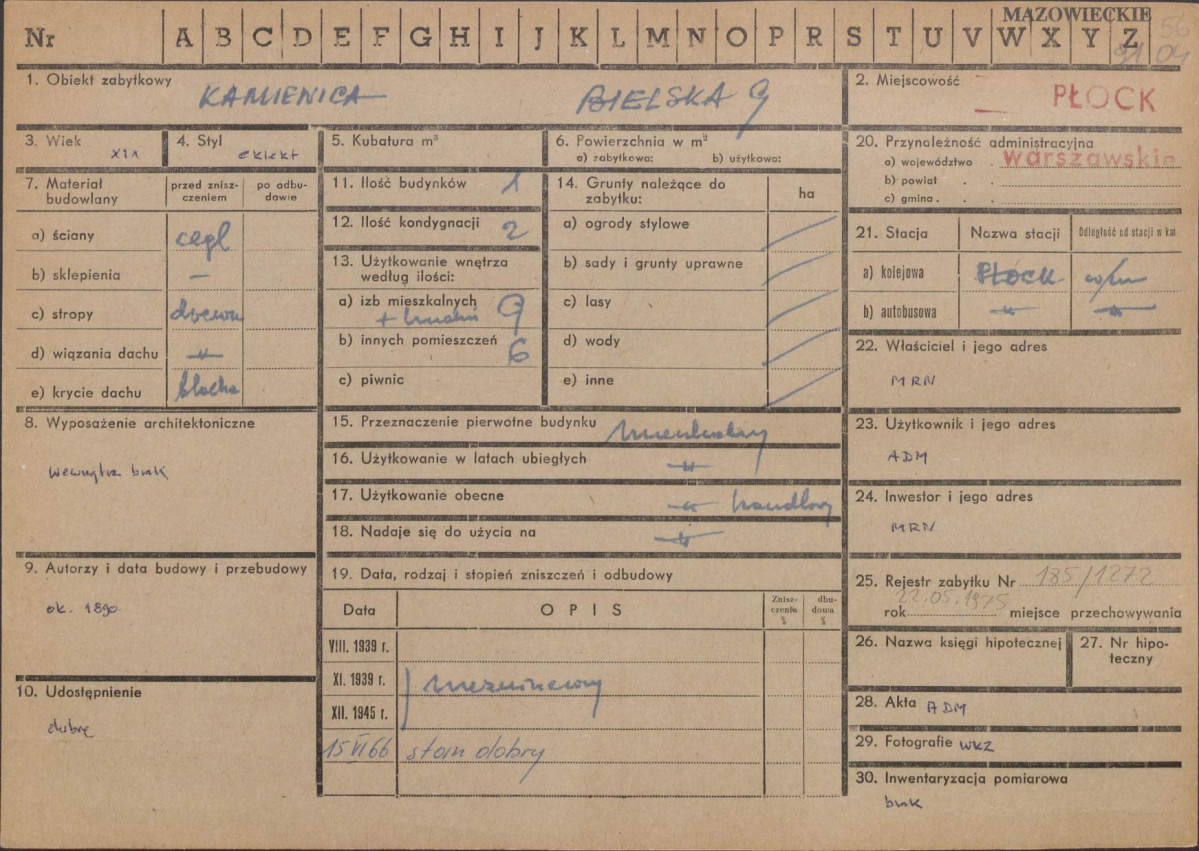 MAZOWIECKIE
Nr A B C D E F G H I J K L M N O P R S T U V W X Y Z
56
04
1. Obiekt zabytkowy
KAMIENICA BIELSKA 9
2. Miejscowość
PŁOCK
3. Wiek XIX
4. Styl eklekt
5. Kubatura m³
6. Powierzchnia w m²
a) zabytkowa: b) użytkowa:
7. Materiał budowlany
przed znisz-
czeniem
po odbu-
dowie
a) ściany cegl
b) sklepienia —
c) stropy drewn
d) wiązania dachu -"-
e) krycie dachu blacha
8. Wyposażenie architektoniczne
wewnątrz brak
9. Autorzy i data budowy i przebudowy
ok. 1890
10. Udostępnienie
dobre
11. Ilość budynków 1
12. Ilość kondygnacji 2
13. Użytkowanie wnętrza
według ilości:
a) izb mieszkalnych 9
b) innych pomieszczeń 6
c) piwnic
14. Grunty należące do
zabytku:
ha
a) ogrody stylowe
b) sady i grunty uprawne
c) lasy
d) wody
e) inne
15. Przeznaczenie pierwotne budynku mieszkalny
16. Użytkowanie w latach ubiegłych -"-
17. Użytkowanie obecne -"- handlowy
18. Nadaje się do użycia na -"-
19. Data, rodzaj i stopień zniszczeń i odbudowy
Data
OPIS
Znisz-
czenia
%
dbu-
dowa
%
VIII. 1939 r.
XI. 1939 r.
niezniszczony
XII. 1945 r.
15 VI 66 stan dobry
20. Przynależność administracyjna
a) województwo warszawskie
b) powiat
c) gmina
21. Stacja
Nazwa stacji
Odległość od stacji w km
a) kolejowa PŁOCK
b) autobusowa -"- -"-
22. Właściciel i jego adres
MRN
23. Użytkownik i jego adres
ADM
24. Inwestor i jego adres
MRN
25. Rejestr zabytku Nr 185/1272
rok 22.05.1975 miejsce przechowywania
26. Nazwa księgi hipotecznej
27. Nr hipo-
teczny
28. Akta ADM
29. Fotografie WKZ
30. Inwentaryzacja pomiarowa
brak